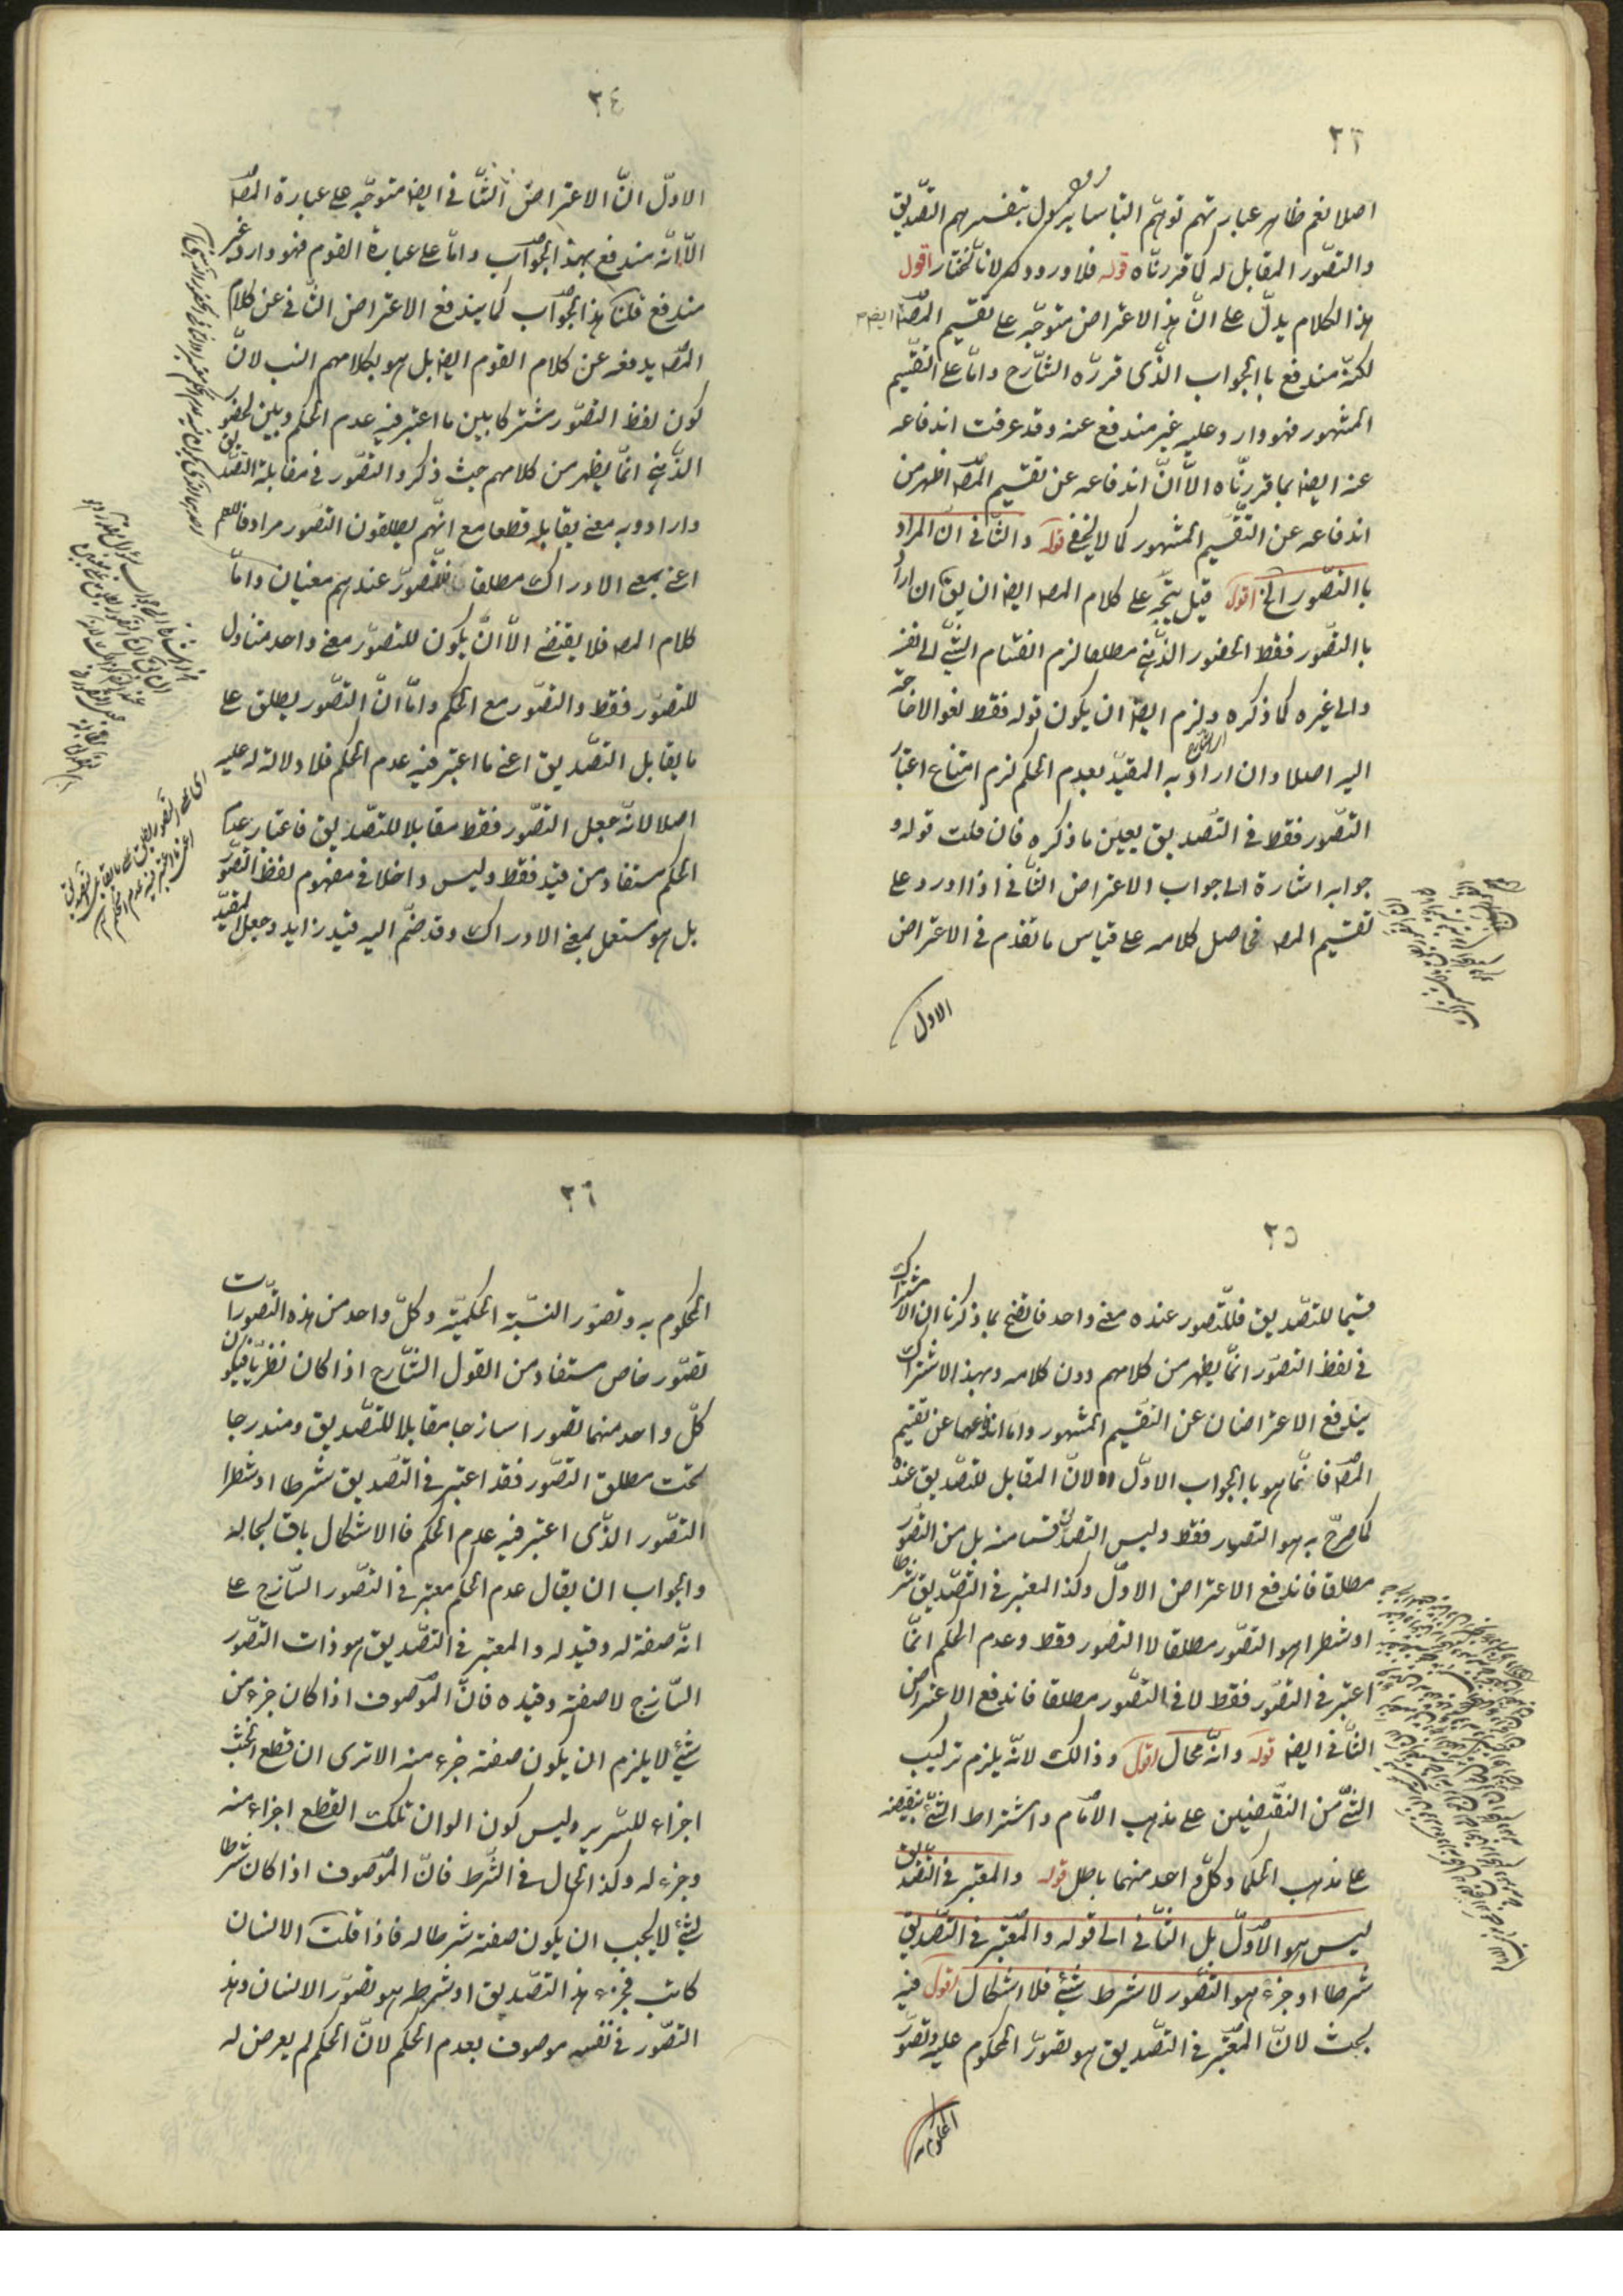 ٢٣
اصلا نعم ظاهر عبارتهم توهم التباسا يزول بتفسيرهم التصديق
والتصور المقابل له كما قررناه قوله فلا ورود له لانا نختار اقول
هذا الكلام يدل على ان هذا الاعتراض متوجه على تقسيم المصـ ايضا
لكنه مندفع باالجواب الذى قرره الشارح واما على التقسيم
المشهور فهو وارد وعليه غير مندفع عنه وقد عرفت اندفاعه
عنه ايضا بما قررناه الا ان اندفاعه عن تقسيم المصـ اظهر من
اندفاعه عن التقسيم المشهور كما لا يخفى قوله والثانى ان المراد
باالتصور الخ اقول قيل يتجه على كلام المصـ ايضا ان يق ان اراد
باالتصور فقط الحضور الذهنى مطلقا لزم انقسام الشئ الى نفسه
والى غيره كما ذكره ولزم ايضا ان يكون قوله فقط لغوا لا حاجة
اليه اصلا وان اراد به المقيد بعدم الحكم لزم امتناع اعتبار
التصور فقط فى التصديق بعين ما ذكره فان قلت قوله و
جوابه اشارة الى جواب الاعتراض الثانى اذا اورد على
تقسيم المصـ فحاصل كلامه على قياس ما تقدم فى الاعتراض
الاول
٢٤
الاول ان الاعتراض الثانى ايضا متوجه على عبارة المصـ
الا انه مندفع بهذا الجواب واما على عبارة القوم فهو وارد غير
مندفع قلنا هذا الجواب كما يندفع الاعتراض الثانى عن كلام
المصـ يدفعه عن كلام القوم ايضا بل هو بكلامهم انسب لان
كون لفظ التصور مشتركا بين ما اعتبر فيه عدم الحكم وبين الحضور
الذهنى انما يظهر من كلامهم حيث ذكروا التصور فى مقابلة التصديق
وارادوا به معنى يقابله قطعا مع انهم يطلقون التصور مرادفا للعلم
اعنى بمعنى الادراك مطلقا فللتصور عندهم معنيان واما
كلام المصـ فلا يقتضى الا ان يكون للتصور معنى واحد متناول
للتصور فقط والتصور مع الحكم واما ان التصور يطلق على
ما يقابل التصديق اعنى ما اعتبر فيه عدم الحكم فلا دلالة له عليه
اصلا لانه جعل التصور فقط مقابلا للتصديق فاعتبار عدم
الحكم مستفاد من قيد فقط وليس داخلا فى مفهوم لفظ التصور
بل هو مستعمل بمعنى الادراك وقد ضم اليه قيد زايد وجعل المقيد
٢٥
قسيما للتصديق فللتصور عنده معنى واحد فاتضح بما ذكرنا ان الاشتراك
فى لفظ التصور انما يظهر من كلامهم دون كلامه وبهذا الاشتراك
يندفع الاعتراضان عن التقسيم المشهور واما اندفاعهما عن تقسيم
المصـ فانما هو باالجواب الاول لان المقابل للتصديق عنده
كما صرح به هو التصور فقط وليس التصديق قسما منه بل من التصور
مطلقا فاندفع الاعتراض الاول وكذا المعتبر فى التصديق شرطا
او شطرا هو التصور مطلقا لا التصور فقط وعدم الحكم انما
اعتبر فى التصور فقط لا فى التصور مطلقا فاندفع الاعتراض
الثانى ايضا قوله وانه محال اقول وذالك لانه يلزم تركيب
الشئ من النقيضين على مذهب الامام واشتراط الشئ بنقيضه
على مذهب الحكما وكل واحد منهما باطل قوله والمعتبر فى التصديق
ليس هو الاول بل الثانى الى قوله والمعتبر فى التصديق
شرطا او جزء هو التصور لا شرط شئ فلا اشكال اقول فيه
بحث لان المعتبر فى التصديق هو تصور المحكوم عليه وتصور
المحكوم
٢٦
المحكوم به وتصور النسبة الحكمية وكل واحد من هذه التصورات
تصور خاص مستفاد من القول الشارح اذا كان نظريا فيكون
كل واحد منهما تصورا ساذجا مقابلا للتصديق ومندرجا
تحت مطلق التصور فقد اعتبر فى التصديق شرطا او شطرا
التصور الذى اعتبر فيه عدم الحكم فاالاشكال باق بحاله
والجواب ان يقال عدم الحكم معتبر فى التصور السازج على
انه صفة له وقيد له والمعتبر فى التصديق هو ذات التصور
السازج لا صفته وقيده فان الموصوف اذا كان جزء من
شئ لا يلزم ان يكون صفته جزء منه الا ترى ان قطع الخشب
اجزاء للسرير وليس كون الوان تلك القطع اجزاء منه
وجزء له وكذا الحال فى الشرط فان الموصوف اذا كان شرطا
لشئ لا يجب ان يكون صفته شرطا له فاذا قلت الانسان
كاتب فجزء هذا التصديق او شرطه هو تصور الانسان وهذا
التصور فى نفسه موصوف بعدم الحكم لان الحكم لم يعرض له